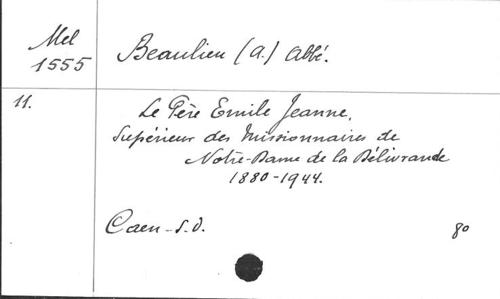 Mel
1555
Beaulieu (A.) Abbé.
11.
Le Père Emile Jeanne,
Supérieur des Missionnaires de
Notre-Dame de la Délivrande
1880-1944.
Caen - S.D.
80